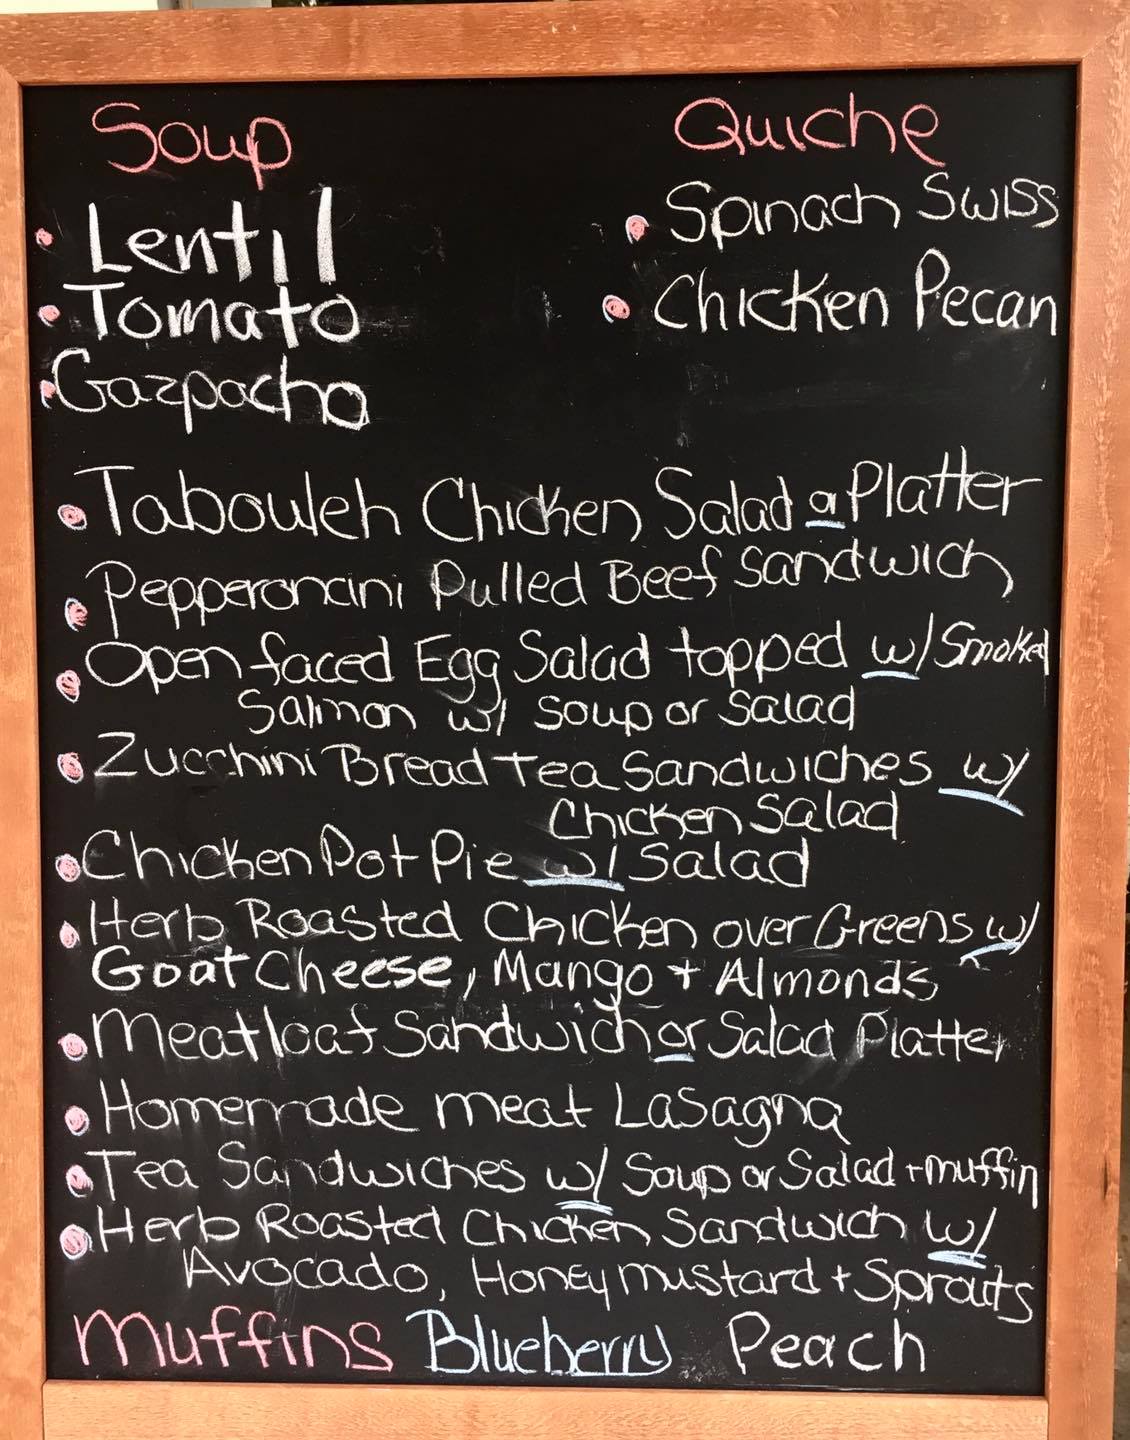 Soup
• Lentil
• Tomato
• Gazpacho
Quiche
• Spinach Swiss
• Chicken Pecan
• Tabouleh Chicken Salad a Platter
• Pepperoncini Pulled Beef Sandwich
• Open faced Egg Salad topped w/ Smoked
Salmon w/ soup or salad
• Zucchini Bread Tea Sandwiches w/
Chicken Salad
• Chicken Pot Pie w/ Salad
• Herb Roasted Chicken over Greens w/
Goat Cheese, Mango + Almonds
• Meatloaf Sandwich or Salad Platter
• Homemade meat Lasagna
• Tea Sandwiches w/ Soup or Salad + muffin
• Herb Roasted Chicken Sandwich w/
Avocado, Honey mustard + Sprouts
Muffins Blueberry Peach